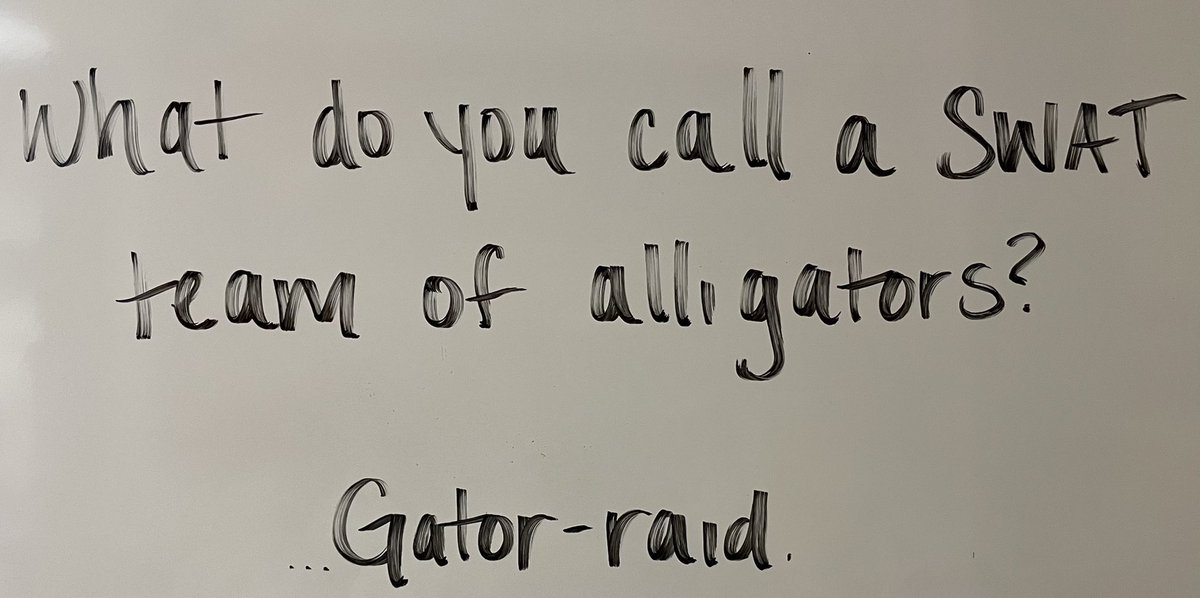 What do you call a SWAT
team of alligators?
...Gator-raid.